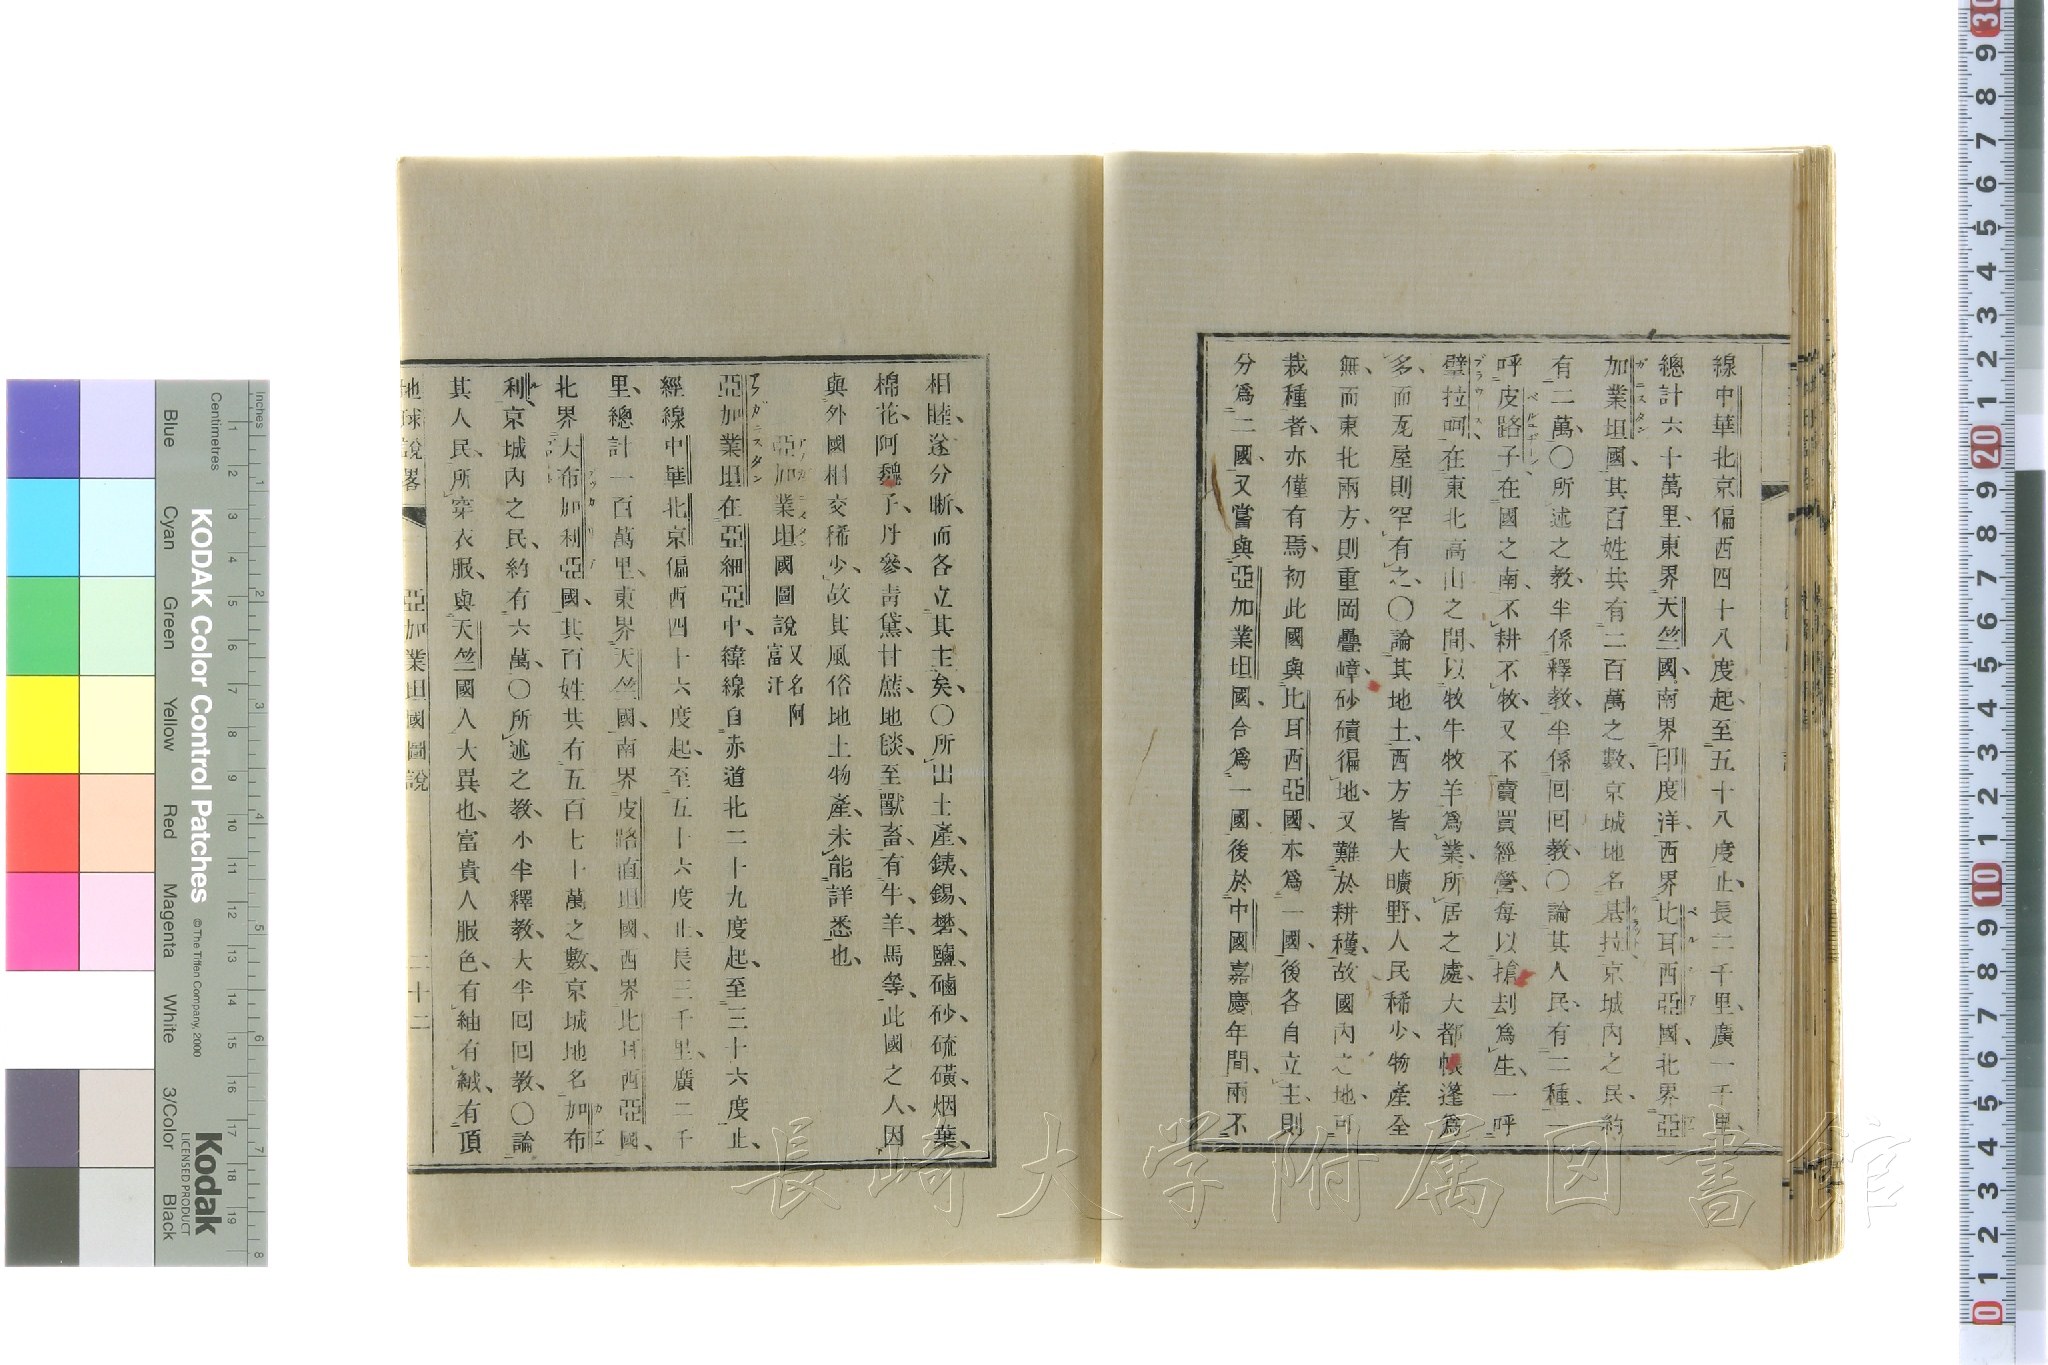 線中華北京偏西四十八度起、至五十八度止、長二千里、廣一千里、
總計六十萬里、東界天竺國、南界印度洋、西界比耳西亞國、北界亞
加業坦國、其百姓共有二百萬之數、京城地名基拉、京城內之民、約
有二萬、〇所述之教、半係釋教、半係回回教、〇論其人民、有二種、一
呼皮路子、在國之南、不耕不牧、又不賣買經營、每以搶刦爲生、一呼
璧拉呵、在東北高山之間、以牧牛牧羊爲業、所居之處、大都帳蓬爲
多、而瓦屋則罕有之、〇論其地土、西方皆大曠野、人民稀少、物產全
無、而東北兩方、則重岡疊嶂、砂磧徧地、又難於耕穫、故國內之地、可
栽種者、亦僅有焉、初此國與比耳西亞國、本爲一國、後各自立主、則
分爲二國、又嘗與亞加業坦國、合爲一國、後於中國嘉慶年間、兩不
相睦、遂分斷、而各立其主矣、〇所出土產、銕、錫、礬、鹽、磠砂、硫磺、烟葉、
棉花、阿魏子、丹參、靑黛、甘蔗、地毯、至獸畜、有牛、羊、馬等、此國之人、因
與外國相交稀少、故其風俗地土物產、未能詳悉也、
亞加業坦國圖說 又名阿富汗
亞加業坦在亞細亞中、緯線自赤道北二十九度起、至三十六度止、
經線中華北京偏西四十六度起、至五十六度止、長三千里、廣二千
里、總計一百萬里、東界天竺國、南界皮路直坦國、西界比耳西亞國、
北界大布加利亞國、其百姓共有五百七十萬之數、京城地名加布
利、京城內之民、約有六萬、〇所述之教、小半釋教、大半回回教、〇論
其人民、所穿衣服、與天竺國人大異也、富貴人服色、有紬有絨、有頂
地球說畧 亞加業坦國圖說 二十二
KODAK Color Control Patches
© The Tiffen Company, 2000
Kodak
LICENSED PRODUCT
Centimetres
Inches
Blue Cyan Green Yellow Red Magenta White 3/Color Black
長崎大学附属図書館